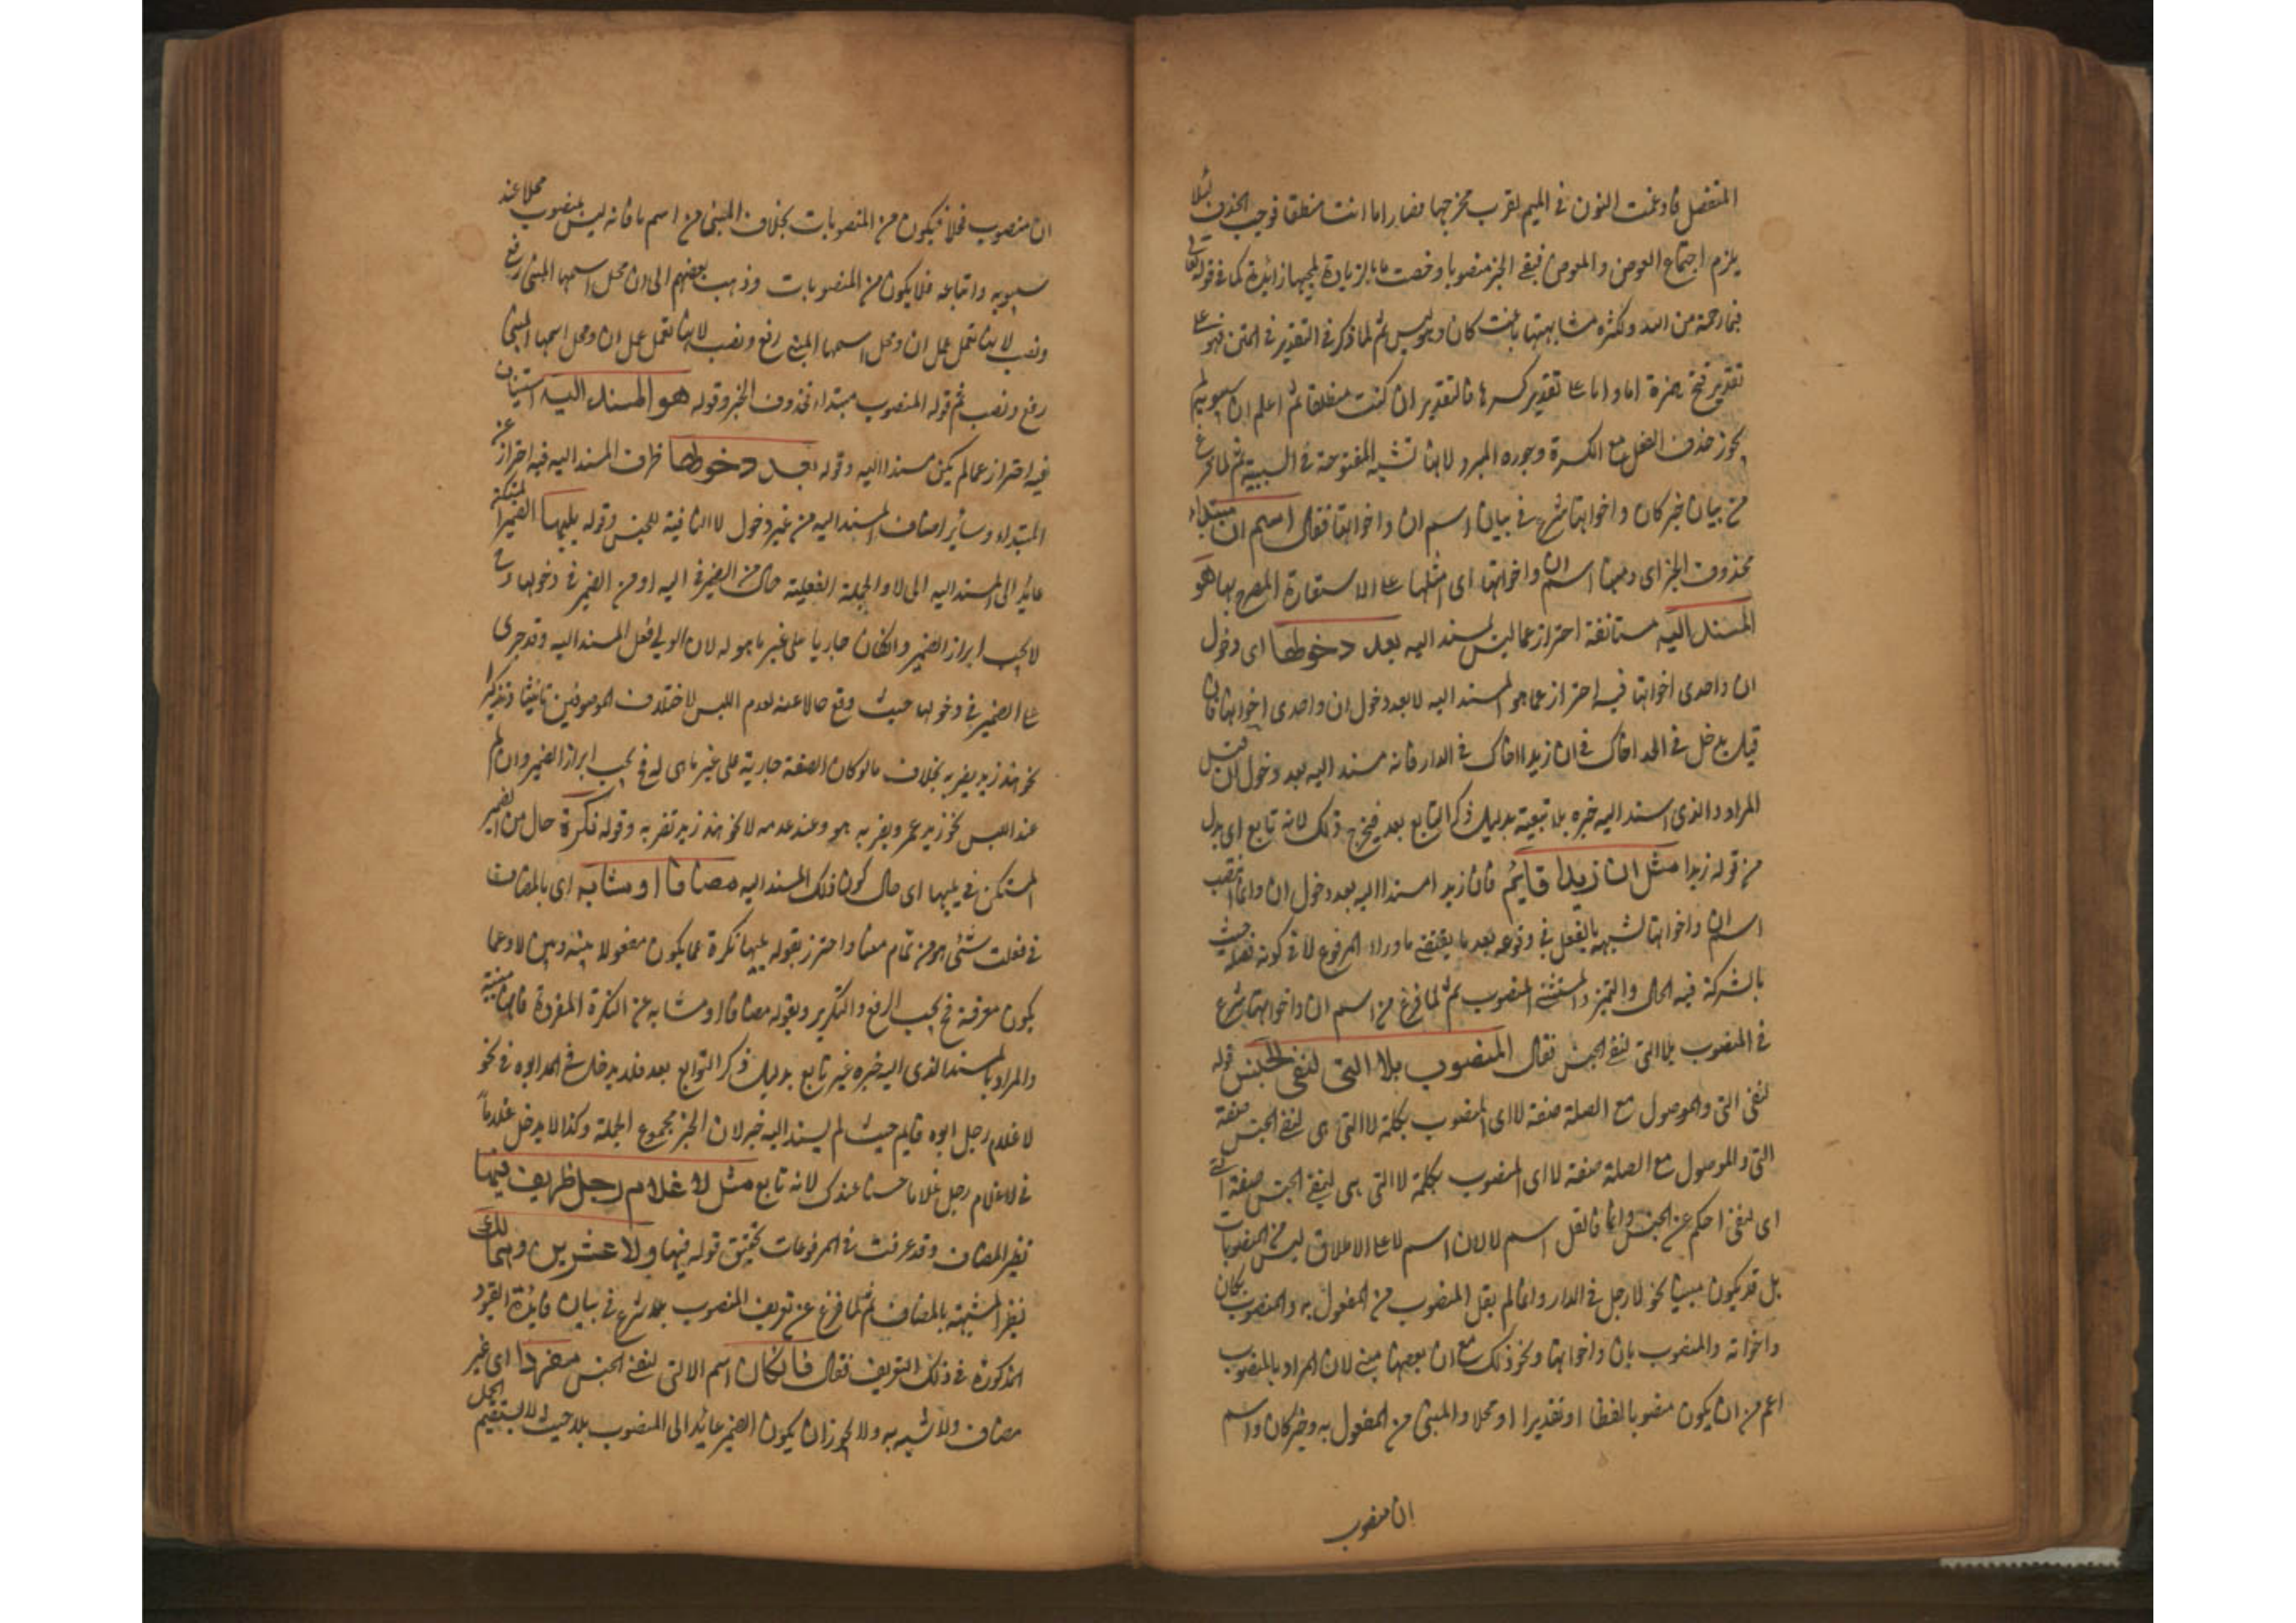 المنفصل فادغمت النون في الميم لقرب مخرجها فصار اما انت منطلقا فوجب الحذف لئلا
يلزم اجتماع العوض والمعوض فبقي الخبر منصوبا وخصت ما بالزيادة لمجيها زائدة كما في قوله تعالى
فبما رحمة من الله ولكثرة مشابهتها بانت كان وهو ليس ثم لما ذكر في التقدير في المتن فهو على
تقدير فتح همزة اما واما على تقدير كسرها فالتقدير ان كنت منطلقا ثم اعلم ان سيبويه لم
يجوز حذف الفعل مع الكسرة وجوزه المبرد لانها تشبه المفتوحة في السببية ثم لما فرغ
من بيان خبر كان واخواتها شرع في بيان اسم ان واخواتها فقال اسم ان مبتداء
محذوف الخبر اى ومنها اسم ان واخواتها اى امثلها على الاستعارة المصرح بها هو
المسند اليه مستانفة احتراز عما ليس لمسند اليه بعد دخولها اى دخول
ان واحدى اخواتها فيه احتراز عما هو المسند اليه لا بعد دخول ان واحدى اخواتها فان
قيل يدخل في الحد اخاك في ان زيدا اخاك في الدار فانه مسند اليه بعد دخول ان قيل
المراد والذى اسند اليه خبره بلا تبعية بدليل ذكر التابع بعد فيخرج ذلك لانه تابع اى بدل
من قوله زيدا مثل ان زيدا قايم فان زيدا مسندا اليه بعد دخول ان وانما انتصب
اسم ان واخواتها لشبهه بالفعل في وقوعه بعد ما يقتضى ما وراء المرفوع لا في كونه فضلة حيث
بالشركة فيه الحال والتميز والمستثنى المنصوب ثم لما فرغ من اسم ان واخواتها شرع
في المنصوب بلا التى لنفى الجنس فقال المنصوب بلا التى لنفى الجنس قوله
لنفى التى والموصول مع الصلة صفة لا اى المنصوب بكلمة لا التى هى لنفى الجنس صفة
التى والموصول مع الصلة صفة لا اى المنصوب بكلمة لا التى هى لنفى الجنس صفة
اى لنفى احكم عن الجنس وانما قال لم يقل اسم لا لان اسم لا على الاطلاق ليس من المنصوبات
بل قد يكون مبنيا نحو لا رجل في الدار وانما لم يقل المنصوب من المفعول به والمنصوب بكان
واخواته والمنصوب بان واخواتها ونحو ذلك مع ان بعضها مبنى لان المراد بالمنصوب
اعم من ان يكون منصوبا لفظا او تقديرا او محلا والمبنى من المفعول به وخبر كان واسم
ان منصوب
ان منصوب محلا فيكون من المنصوبات بخلاف المبنى من اسم لا فانه ليس بمنصوب محلا عند
سيبويه واتباعه فلا يكون من المنصوبات وذهب بعضهم الى ان محل اسمها المبنى رفع
ونصب لانها تعمل عمل ان ومحل اسمها المبنى رفع ونصب لانها تعمل عمل ان ومحل اسمها المبنى
رفع ونصب ثم قوله المنصوب مبتداء محذوف الخبر وقوله هو المسند اليه استيناف
فيه احتراز عما لم يكن مسندا اليه وقوله بعد دخولها ظرف المسند اليه فيه احتراز عن
المبتداء وسائر اصناف المسند اليه من غير دخول لا النافية للجنس وقوله يليها الضمير المستكن
عائد الى المسند اليه الى لا والجملة الفعلية حال من الضمير في اليه او من الضمير في دخولها وح
لا يجب ابراز الضمير وانكان جاريا على غير ما هو له لان الولى فعل المسند اليه وقد جرى
على الضمير في دخولها حيث وقع حالا عنه لعدم اللبس لاختلاف الموصوفين تانيثا وتذكيرا
نحو هند زيد يضربه بخلاف ما لو كان الصفة جارية على غير ما هى له فح يجب ابراز الضمير وان لم
عند اللبس نحو زيد عمرو يضربه هو وعند عدمه لا نحو هند زيد تضربه وقوله نكرة حال من الضمير
المستكن في يليها اى حال كون ذلك المسند اليه مضافا او مشابه اى بالمضاف
في فعلت شئى هو من تمام معناه واحترز بقوله يليها نكرة عما يكون مفصولا بينه وبين لا وعما
يكون معرفة فح يجب الرفع والتكرير وبقوله مضافا او مشابه عن النكرة المفردة فانها مبنية
والمراد بالمسند الذى اليه خبره غير تابع بدليل ذكر التوابع بعد فلا يدخل في الحد ابوه في نحو
لا غلام رجل ابوه قايم حيث لم يسند اليه خبر لان الخبر مجموع الجملة وكذا لا يدخل غلاما
في لا غلام رجل غلاما حسنا عندك لانه تابع مثل لا غلام رجل ظريف فيها
نظير المضاف وقد عرفت في المرفوعات تحقيق قوله فيها ولا عشرين درهما لك
نظير المشبه بالمضاف ثم لما فرغ عن تعريف المنصوب بلا شرع في بيان فايدة القيود
المذكورة في ذلك التعريف فقال فان كان اسم لا التى لنفى الجنس مفردا اى غير
مضاف ولا شبه به ولا يجوز ان يكون الضمير عائد الى المنصوب بلا حيث لا يستقيم الحمل